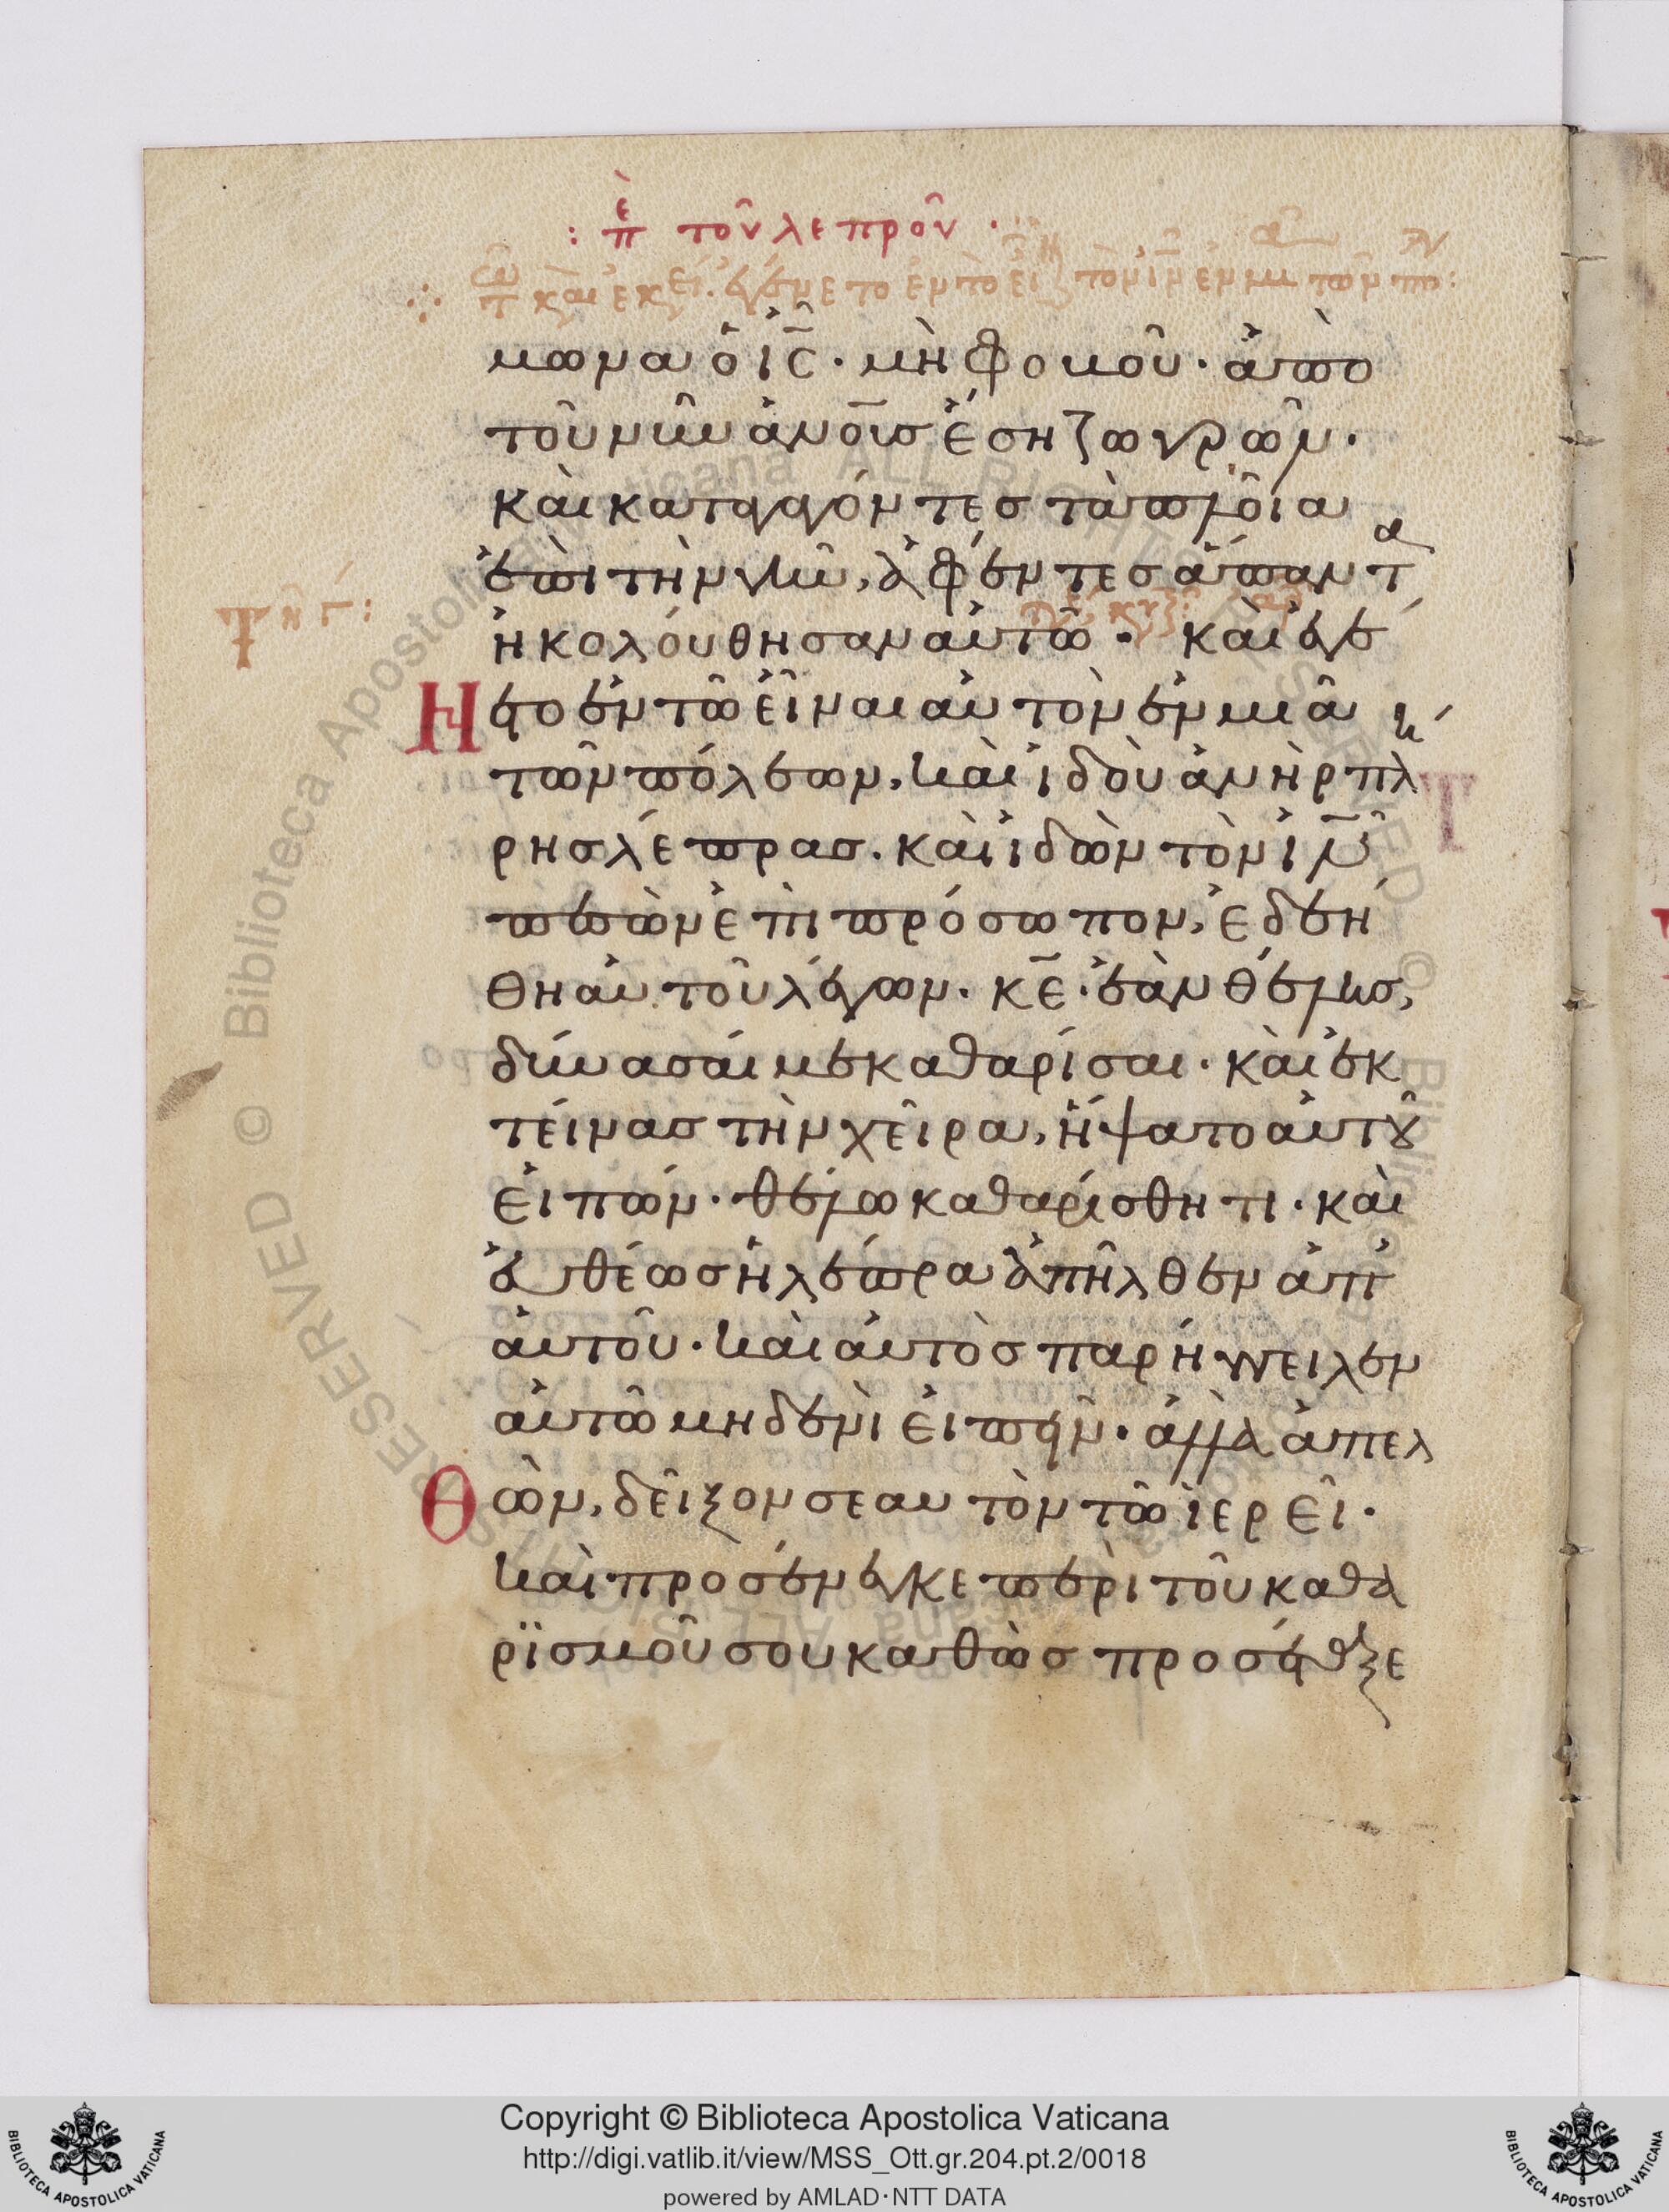 : επ τοῦ λεπροῦ ·
μωνα ὁ ἰς̅ · μὴ φοβοῦ · ἀπο
τοῦ νῦν ἀνο̅ισ ἔση ζωγρῶν ·
καὶ καταγαγόντεσ τὰ πλοῖα
ἐπὶ τὴν γῆν, ἀφέντεσ ἅπαντα
ἠκολούθησαν αὐτῶ · καὶ ἐγέ
νετο ἐν τῶ εἶναι αὐτὸν ἐν μιᾶ
τῶν πόλεων, καὶ ἰδοὺ ἀνὴρ πλή
ρησ λέπρασ · καὶ ἰδὼν τὸν ἰν̅
πεσὼν ἐπὶ πρόσωπον, ἐδεή
θη αὐτοῦ λέγων · κε̅ · ἐὰν θέλησ,
δύνασαί με καθαρίσαι · καὶ ἐκ
τείνασ τὴν χεῖρα, ἥψατο αὐτοῦ
εἰπών · θέλω καθαρίσθητι · καὶ
εὐθέωσ ἡ λέπρα ἀπῆλθεν ἀπ
αὐτοῦ · καὶ αὐτὸσ παρήγγειλεν
αὐτῶ μηδενὶ εἰπεῖν · ἀλλὰ ἀπελ
θὼν, δεῖξον σεαυτὸν τῶ ἱερεῖ ·
καὶ προσένεγκε περὶ τοῦ καθα
ρϊσμοῦ σου καθὼσ προσέταξε
Copyright © Biblioteca Apostolica Vaticana
http://digi.vatlib.it/view/MSS_Ott.gr.204.pt.2/0018
powered by AMLAD·NTT DATA
BIBLIOTECA APOSTOLICA VATICANA
BIBLIOTECA APOSTOLICA VATICANA